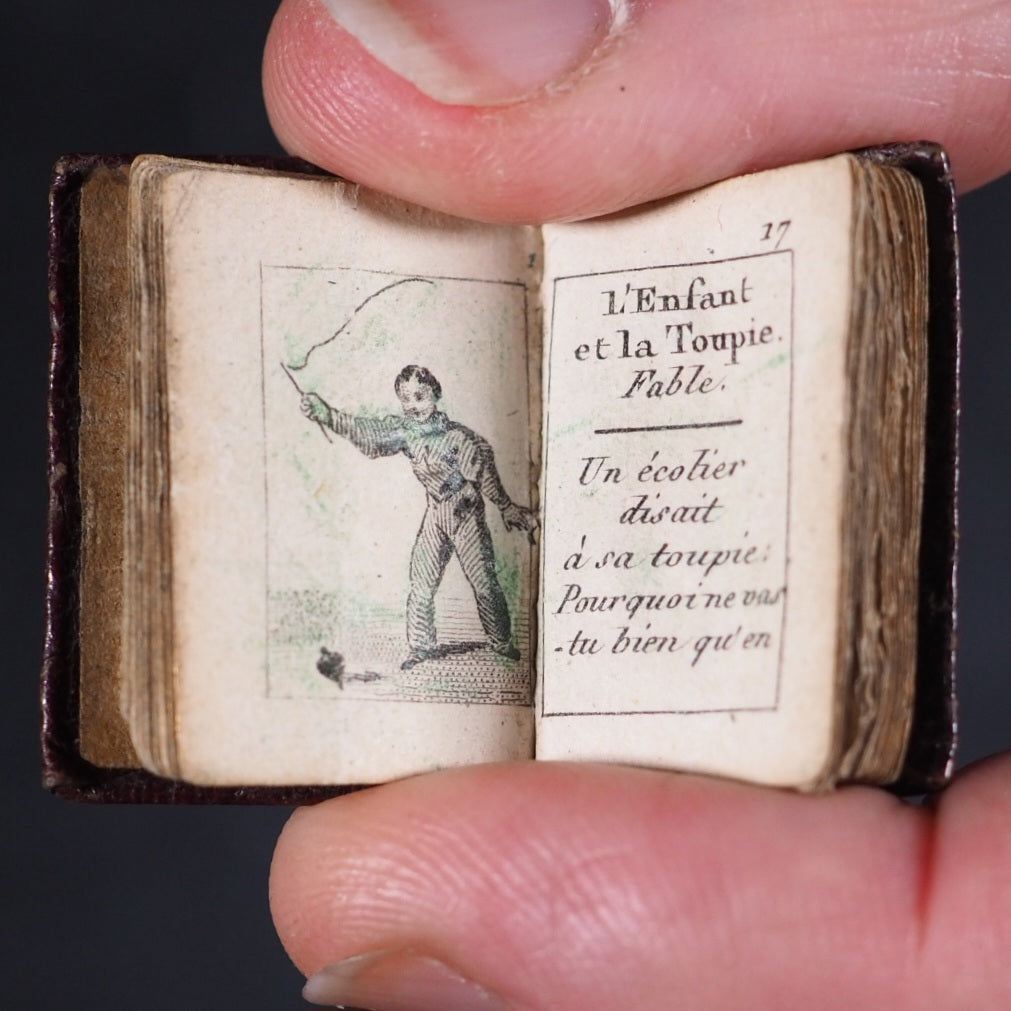 17
l'Enfant
et la Toupie.
Fable.
Un écolier
disait
à sa toupie:
Pourquoi ne vas
-tu bien qu'en